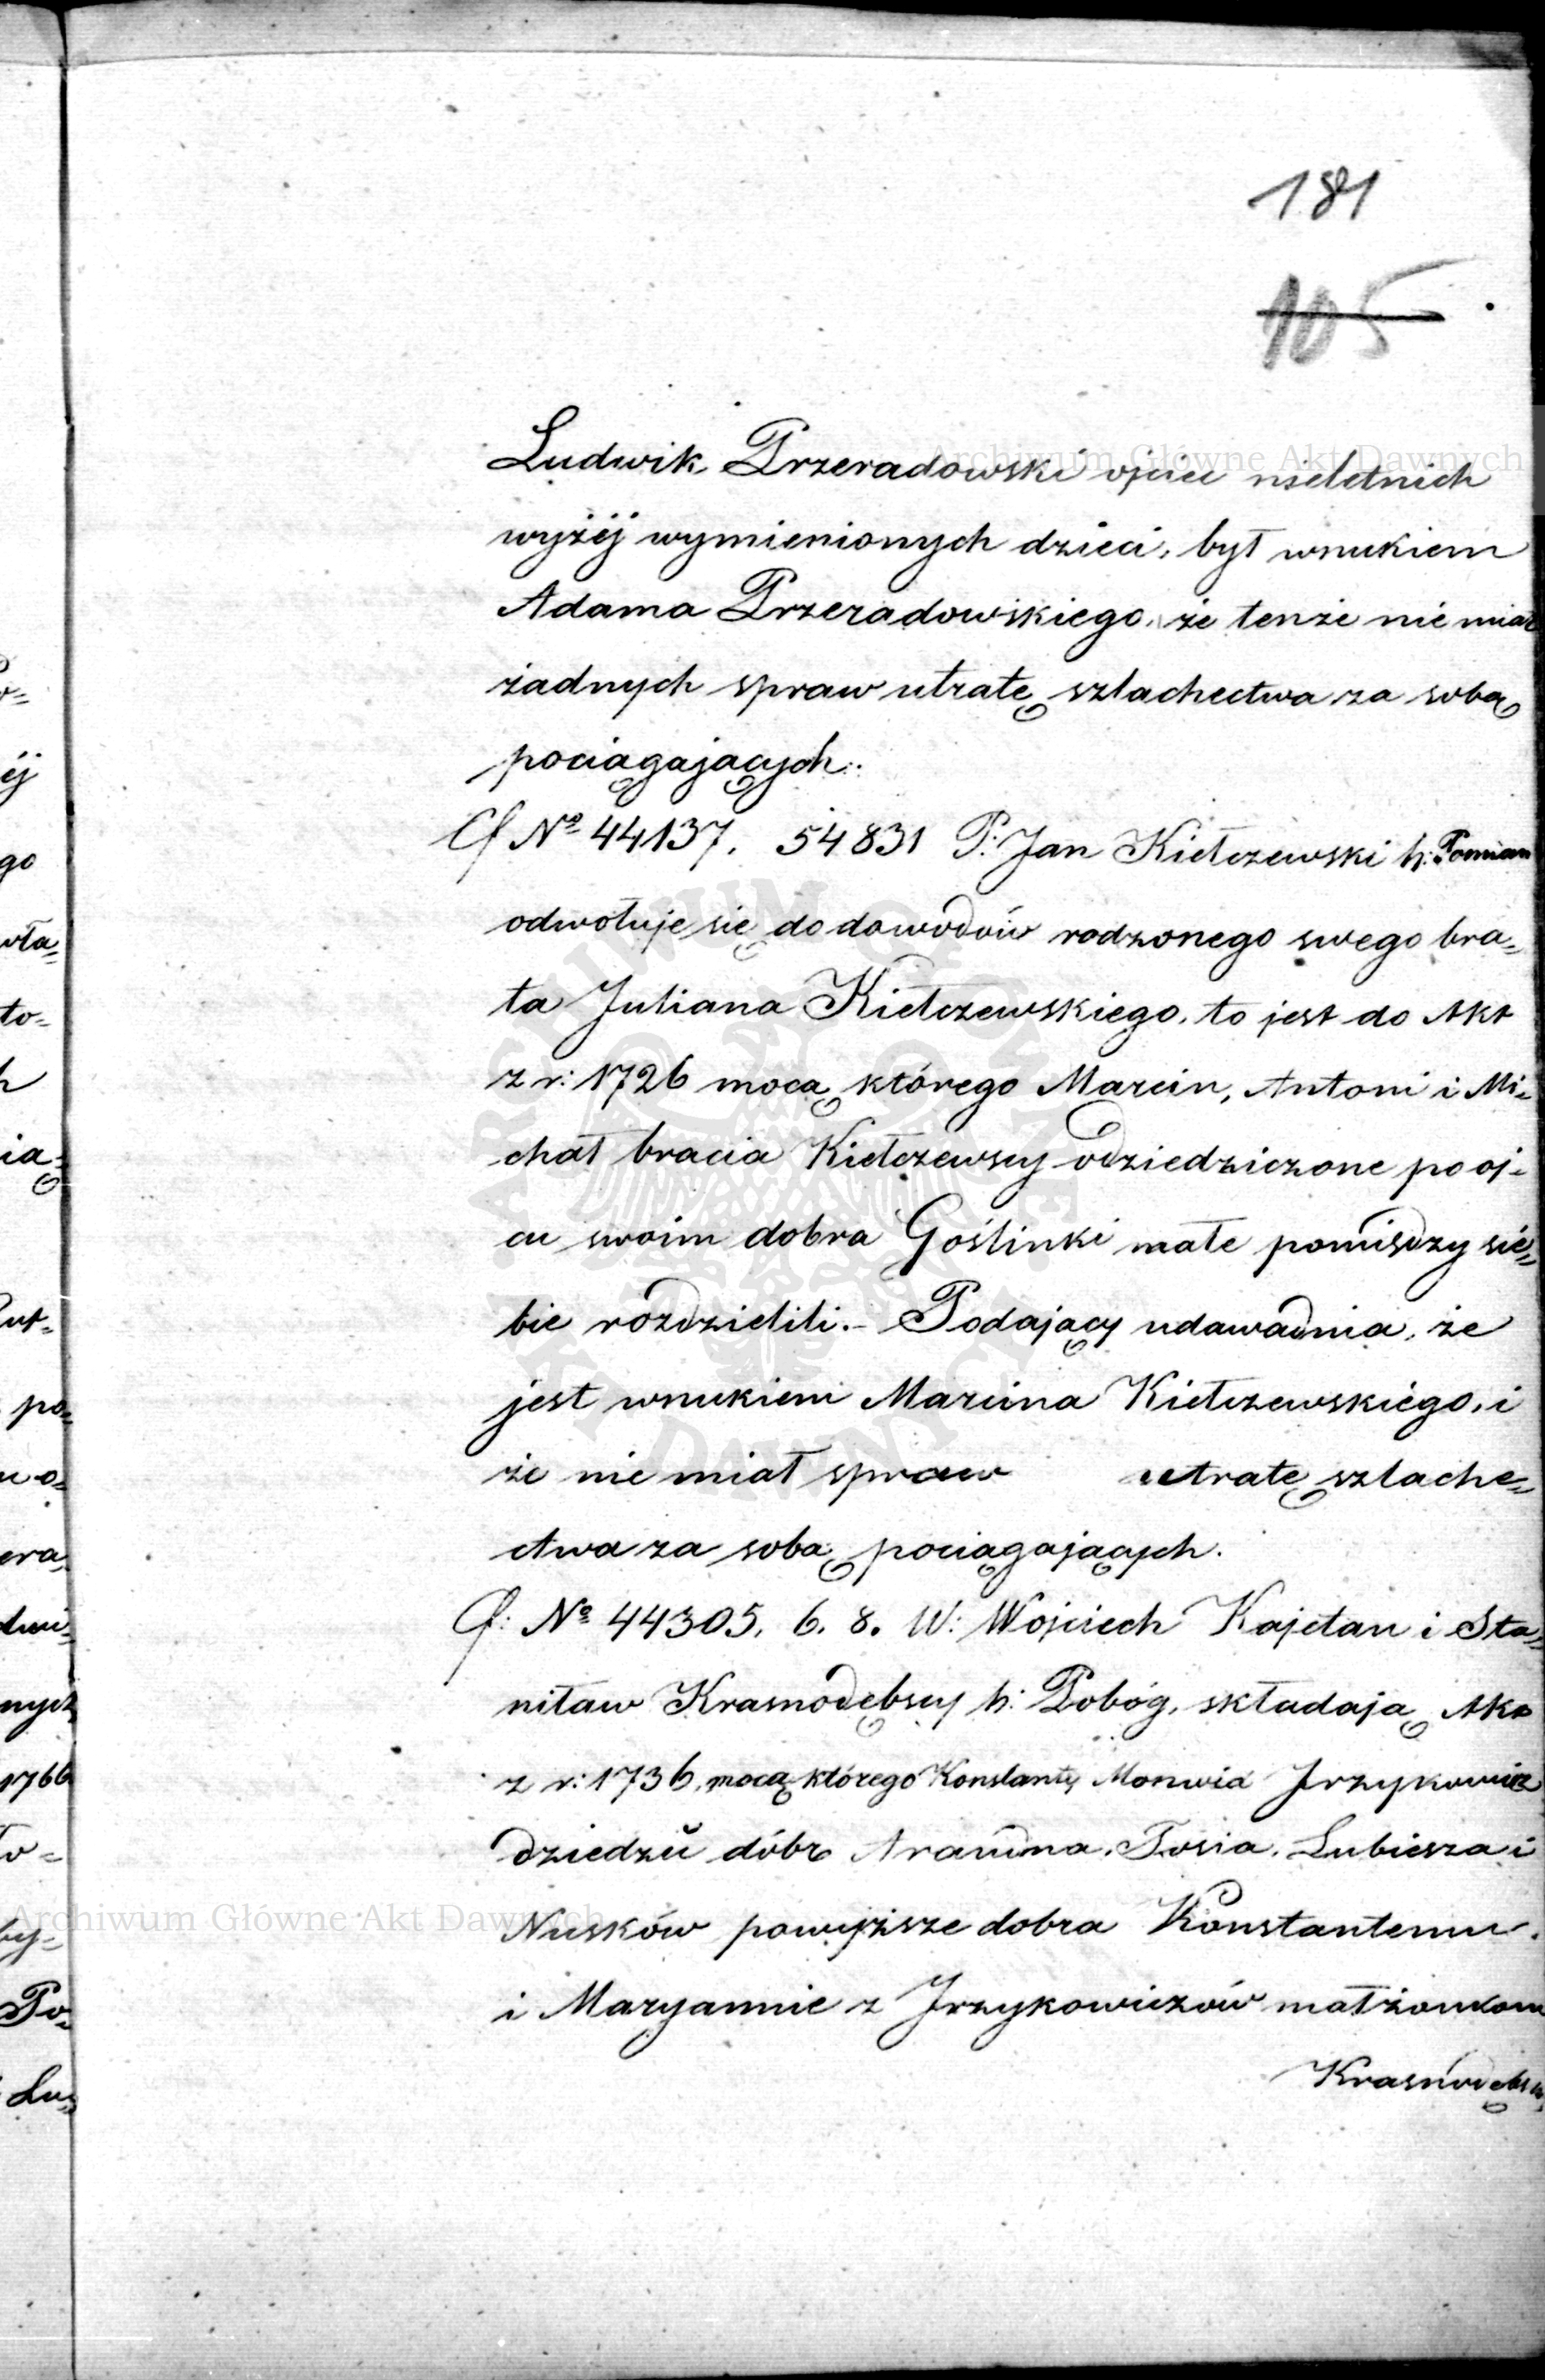 181
105
Ludwik Przeradowski ojciec nieletnich
wyżéj wymienionych dzieci, był wnukiem
Adama Przeradowskiego, że tenże nie miał
żadnych spraw utratę szlachectwa za sobą
pociągających.
Cf No 44137. 54831 P. Jan Kiełczewski h: Pomian
odwołuje się do dowodów rodzonego swego bra=
ta Juliana Kiełczewskiego, to jest do Akt
z r: 1726 mocą którego Marcin, Antoni i Mi=
chał bracia Kiełczewscy odziedziczone po oj=
cu swoim dobra Goślinki małe pomiędzy sie=
bie rozdzielili. – Podający udawadnia, że
jest wnukiem Marcina Kiełczewskiego, i
że nie miał spraw utratę szlache=
ctwa za sobą pociągających.
Cf: No 44305. 6. 8. W: Wojciech Kajetan i Sta=
nisław Krasnodębscy h: Pobóg, składają Akt
z r: 1736, mocą którego Konstanty Monwid Jrzykowicz
dziedzic dóbr Tosia, Lubiesza i
Nusków powyższe dobra Konstantemu
i Maryannie z Jrzykowiczów małżonkom
Krasnodębs
ej
go
wła=
to=
h
ią=
po=
era=
dwi=
nych
1766
ło=
by=
Po=
Lu=
Archiwum Główne Akt Dawnych
Archiwum Główne Akt Dawnych
ARCHIWUM GŁÓWNE AKT DAWNYCH